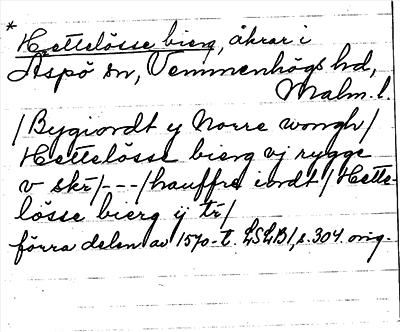 * Hettelösse bierg, åkrar i
Aspö sn, Vemmenhögs hd,
Malm. l.
/Bygiordt y Norre wongh/
Hettelösse bierg vj rygge
v skr/---/hauffre iordt/Hette-
lösse bierg ij tr/
förra delen av 1570-t. LSLB1, s. 304 orig.